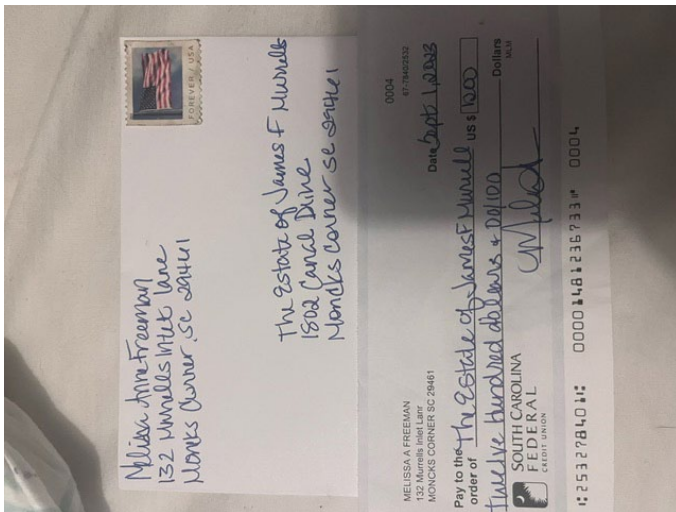 Melissa Anne Freeman
132 Murrells Inlet Lane
Moncks Corner, SC 29461
FOREVER / USA
The Estate of James F Murrells
1802 Canal Drive
Moncks Corner SC 29461
0004
67-7840/2532
MELISSA A FREEMAN
132 Murrells Inlet Lanr
MONCKS CORNER SC 29461
Date Sept 1, 2023
Pay to the
order of The Estate of James F Murrell US $ 1200
Twelve Hundred dollars & 00/100 Dollars
MLM
SOUTH CAROLINA
FEDERAL
CREDIT UNION
⑆253278401⑆ 00001481236733⑈ 0004